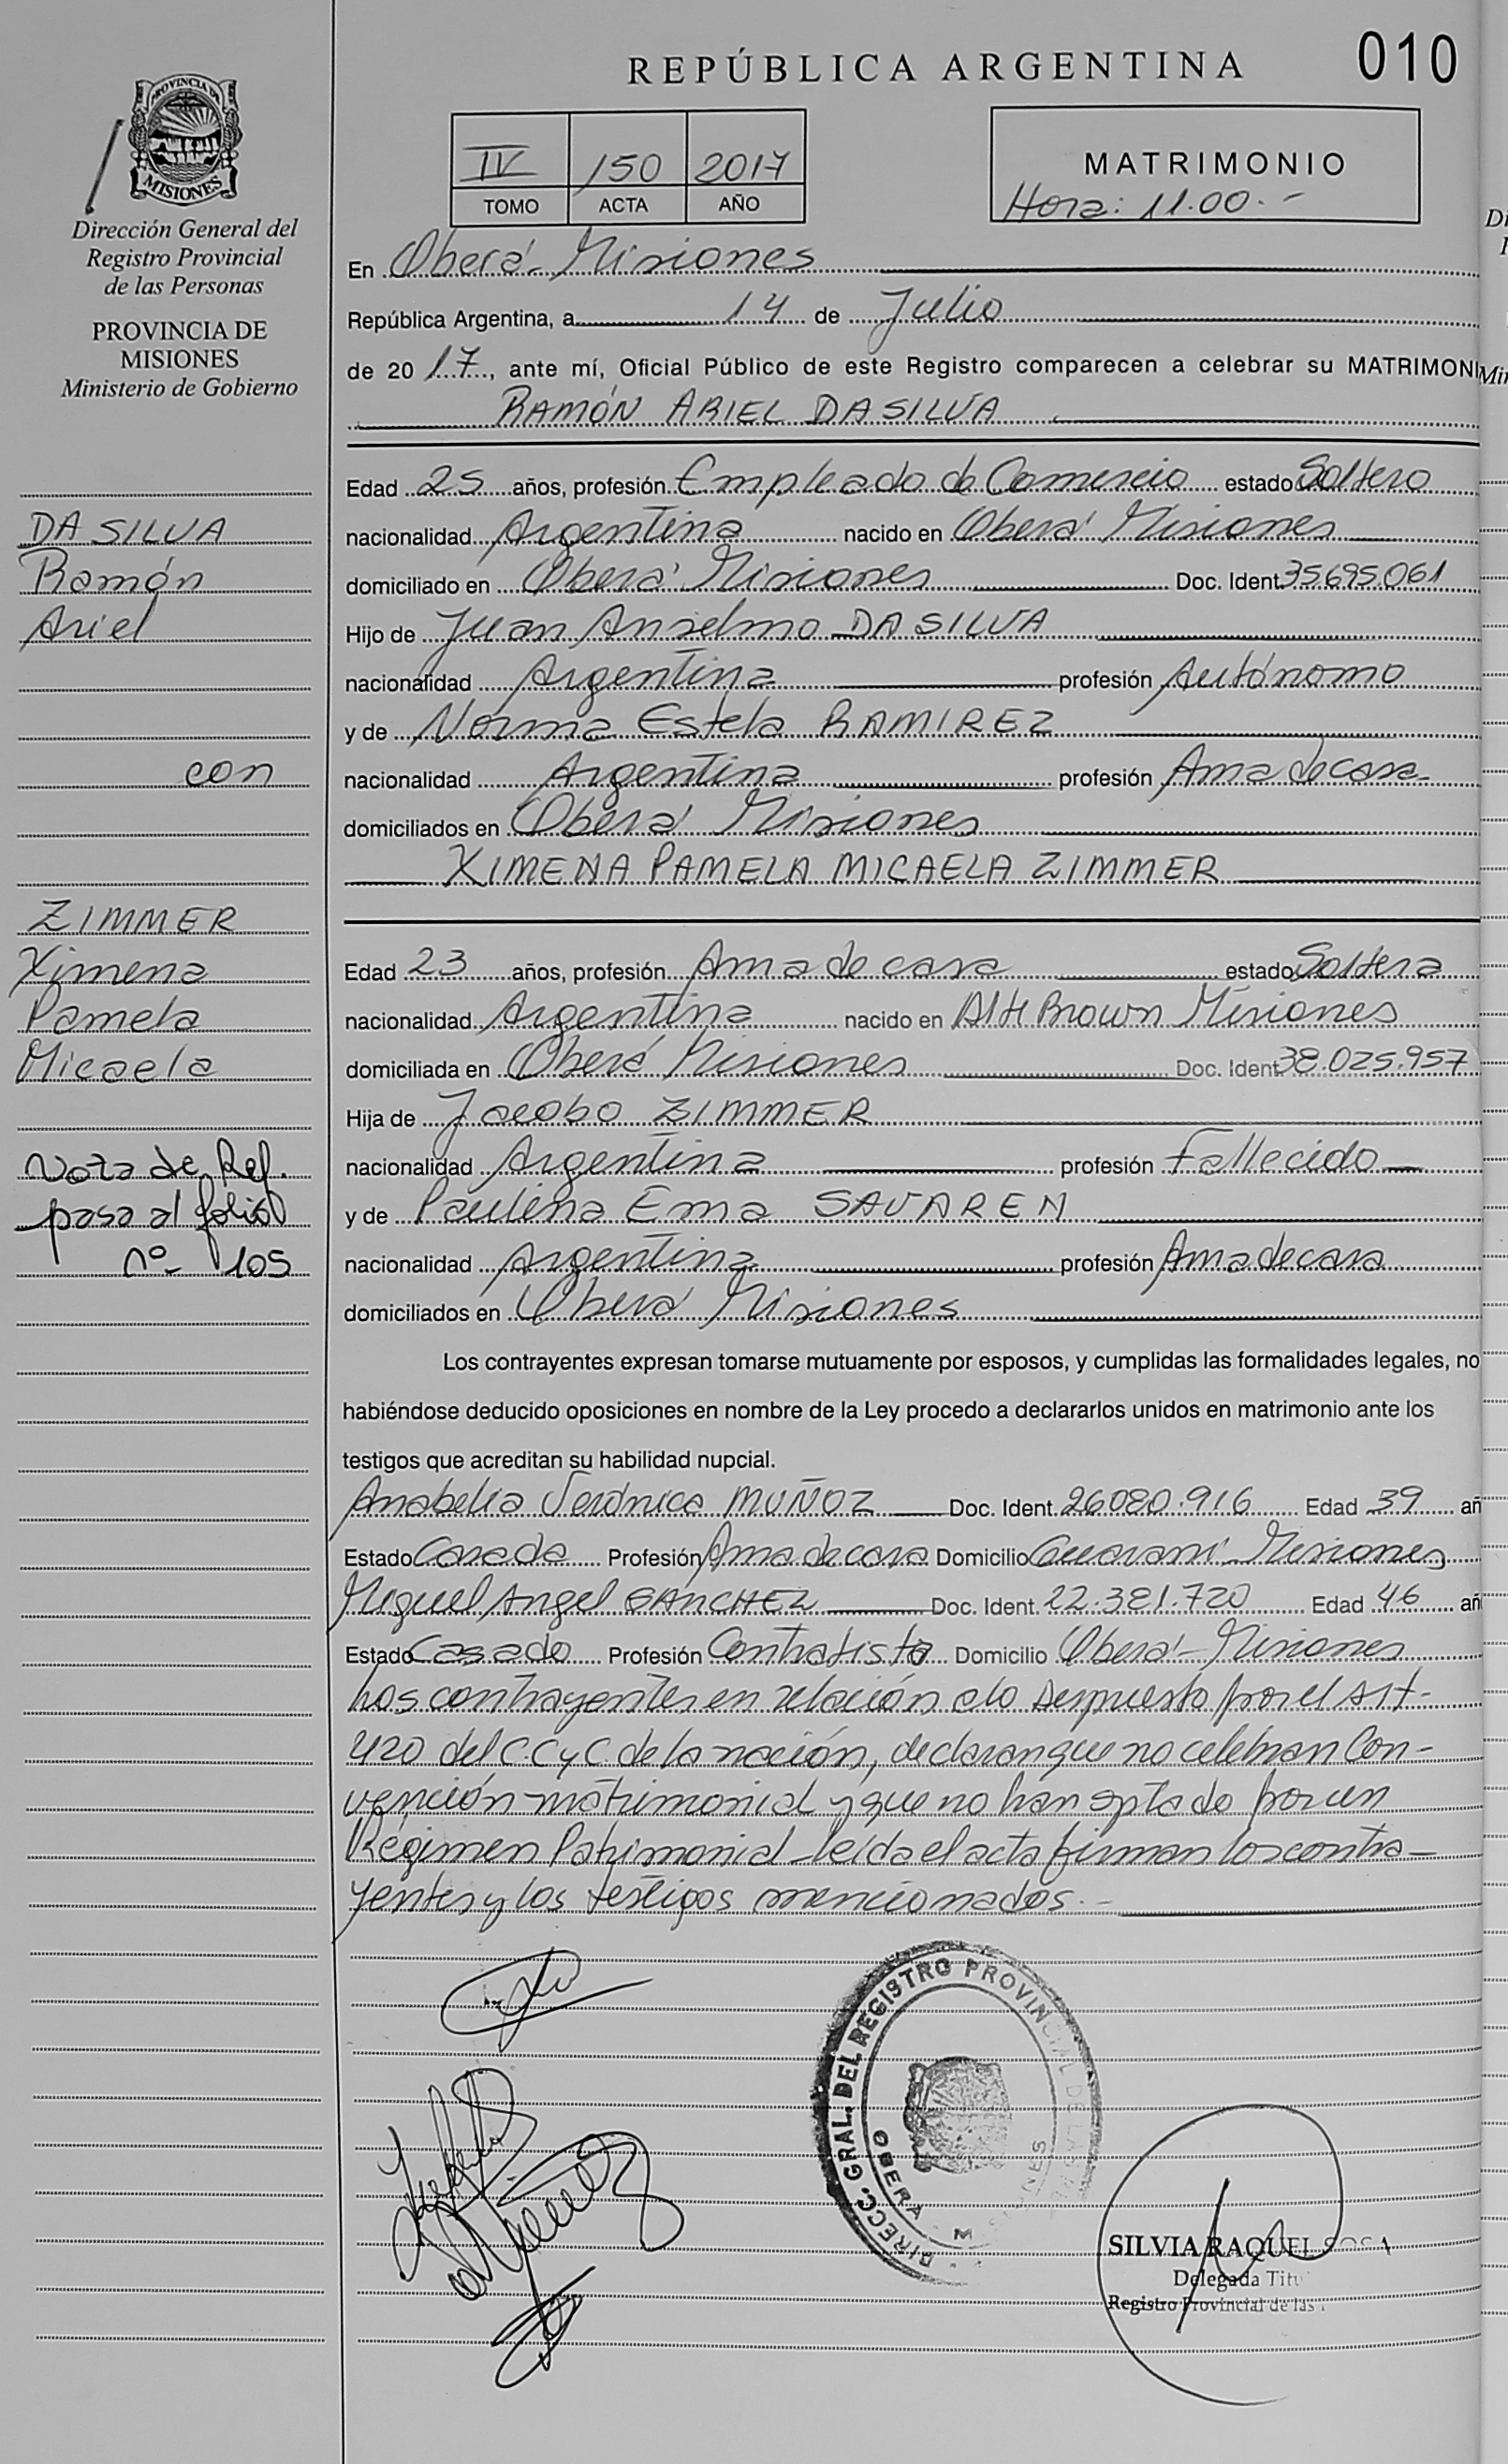 REPÚBLICA ARGENTINA 010
PROVINCIA DE
MISIONES
Dirección General del
Registro Provincial
de las Personas
PROVINCIA DE
MISIONES
Ministerio de Gobierno
IV 150 2017
TOMO ACTA AÑO
MATRIMONIO
Hora: 11.00.-
En Oberá Misiones
República Argentina, a 14 de Julio
de 20 17, ante mí, Oficial Público de este Registro comparecen a celebrar su MATRIMONI
RAMÓN ARIEL DA SILVA
Edad 25 años, profesión Empleado de Comercio estado Soltero
nacionalidad Argentina nacido en Oberá Misiones
domiciliado en Oberá Misiones Doc. Ident. 35695.061
Hijo de Juan Anselmo DA SILVA
nacionalidad Argentina profesión Autónomo
y de Norma Estela RAMIREZ
nacionalidad Argentina profesión Ama de casa
domiciliados en Oberá Misiones
XIMENA PAMELA MICAELA ZIMMER
Edad 23 años, profesión Ama de casa estado Soltera
nacionalidad Argentina nacido en Alte Brown Misiones
domiciliada en Oberá Misiones Doc. Ident. 38.025.957
Hija de Jacobo ZIMMER
nacionalidad Argentina profesión Fallecido
y de Paulina Ema SAVAREN
nacionalidad Argentina profesión Ama de casa
domiciliados en Oberá Misiones
Los contrayentes expresan tomarse mutuamente por esposos, y cumplidas las formalidades legales, no
habiéndose deducido oposiciones en nombre de la Ley procedo a declararlos unidos en matrimonio ante los
testigos que acreditan su habilidad nupcial.
Anabelia Verónica MUÑOZ Doc. Ident. 26080.916 Edad 39 añ
Estado Casada Profesión Ama de casa Domicilio Guaraní Misiones
Miguel Angel SANCHEZ Doc. Ident. 22.381.720 Edad 46 añ
Estado Casado Profesión Contratista Domicilio Oberá - Misiones
Los contrayentes en relación a lo Dispuesto por el Art-
420 del C.C y C. de la nación, declaran que no celebran Con-
vención matrimonial y que no han optado por un
Régimen Patrimonial - leída el acta firman los contra-
yentes y los testigos mencionados.-
DA SILVA
Ramón
Ariel
con
ZIMMER
Ximena
Pamela
Micaela
Nota de Ref.
pasa al folio
nº 105
DIRECC. GRAL. DEL REGISTRO PROVINCIAL DE LAS
OBERA MISIONES
SILVIA RAQUEL SOSA
Delegada Titu
Registro Provincial de las